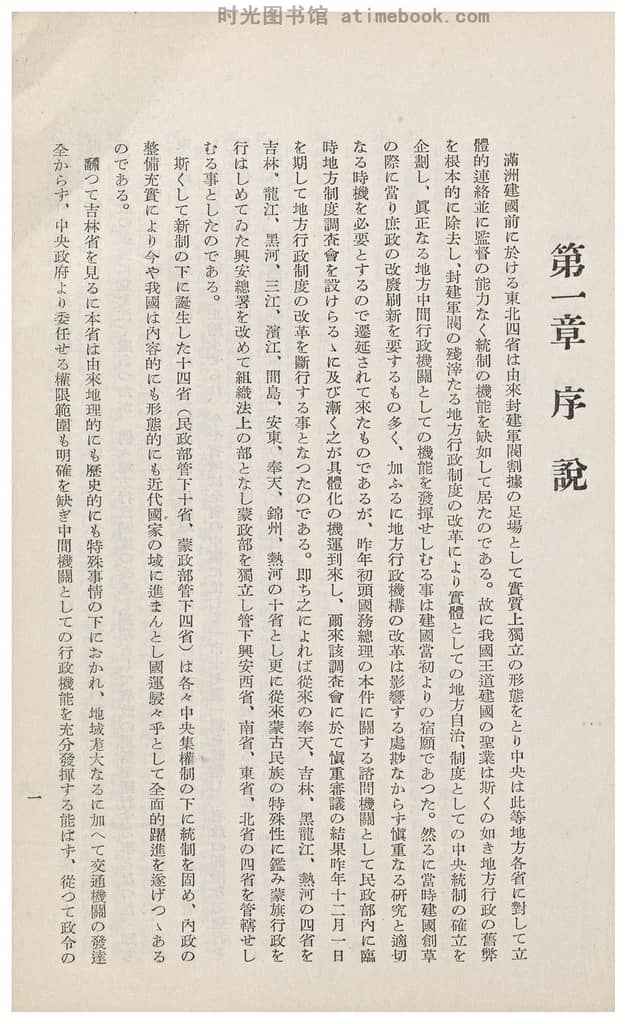 时光图书馆 atimebook.com
第一章 序說
滿洲建國前に於ける東北四省は由來封建軍閥割據の足場として實質上獨立の形態をとり中央は此等地方各省に對して立
體的連絡並に監督の能力なく統制の機能を缺如して居たのである。故に我國王道建國の聖業は斯くの如き地方行政の舊弊
を根本的に除去し、封建軍閥の殘滓たる地方行政制度の改革により實體としての地方自治、制度としての中央統制の確立を
企劃し、眞正なる地方中間行政機關としての機能を發揮せしむる事は建國當初よりの宿願であつた。然るに當時建國創草
の際に當り庶政の改廢刷新を要するもの多く、加ふるに地方行政機構の改革は影響する處尠なからず愼重なる硏究と適切
なる時機を必要とするので遷延されて來たものであるが、昨年初頭國務總理の本件に關する諮問機關として民政部內に臨
時地方制度調査會を設けらるゝに及び漸く之が具體化の機運到來し、爾來該調査會に於て愼重審議の結果昨年十二月一日
を期して地方行政制度の改革を斷行する事となつたのである。卽ち之によれば從來の奉天、吉林、黑龍江、熱河の四省を
吉林、龍江、黑河、三江、濱江、間島、安東、奉天、錦州、熱河の十省とし更に從來蒙古民族の特殊性に鑑み蒙旗行政を
行はしめてゐた興安總署を改めて組織法上の部となし蒙政部を獨立し管下興安西省、南省、東省、北省の四省を管轄せし
むる事としたのである。
斯くして新制の下に誕生した十四省（民政部管下十省、蒙政部管下四省）は各々中央集權制の下に統制を固め、內政の
整備充實により今や我國は內容的にも形態的にも近代國家の域に進まんとし國運駸々乎として全面的躍進を遂げつゝある
のである。
飜つて吉林省を見るに本省は由來地理的にも歷史的にも特殊事情の下におかれ、地域尨大なるに加へて交通機關の發達
全からず、中央政府より委任せる權限範圍も明確を缺ぎ中間機關としての行政機能を充分發揮する能はず、從つて政令の
一